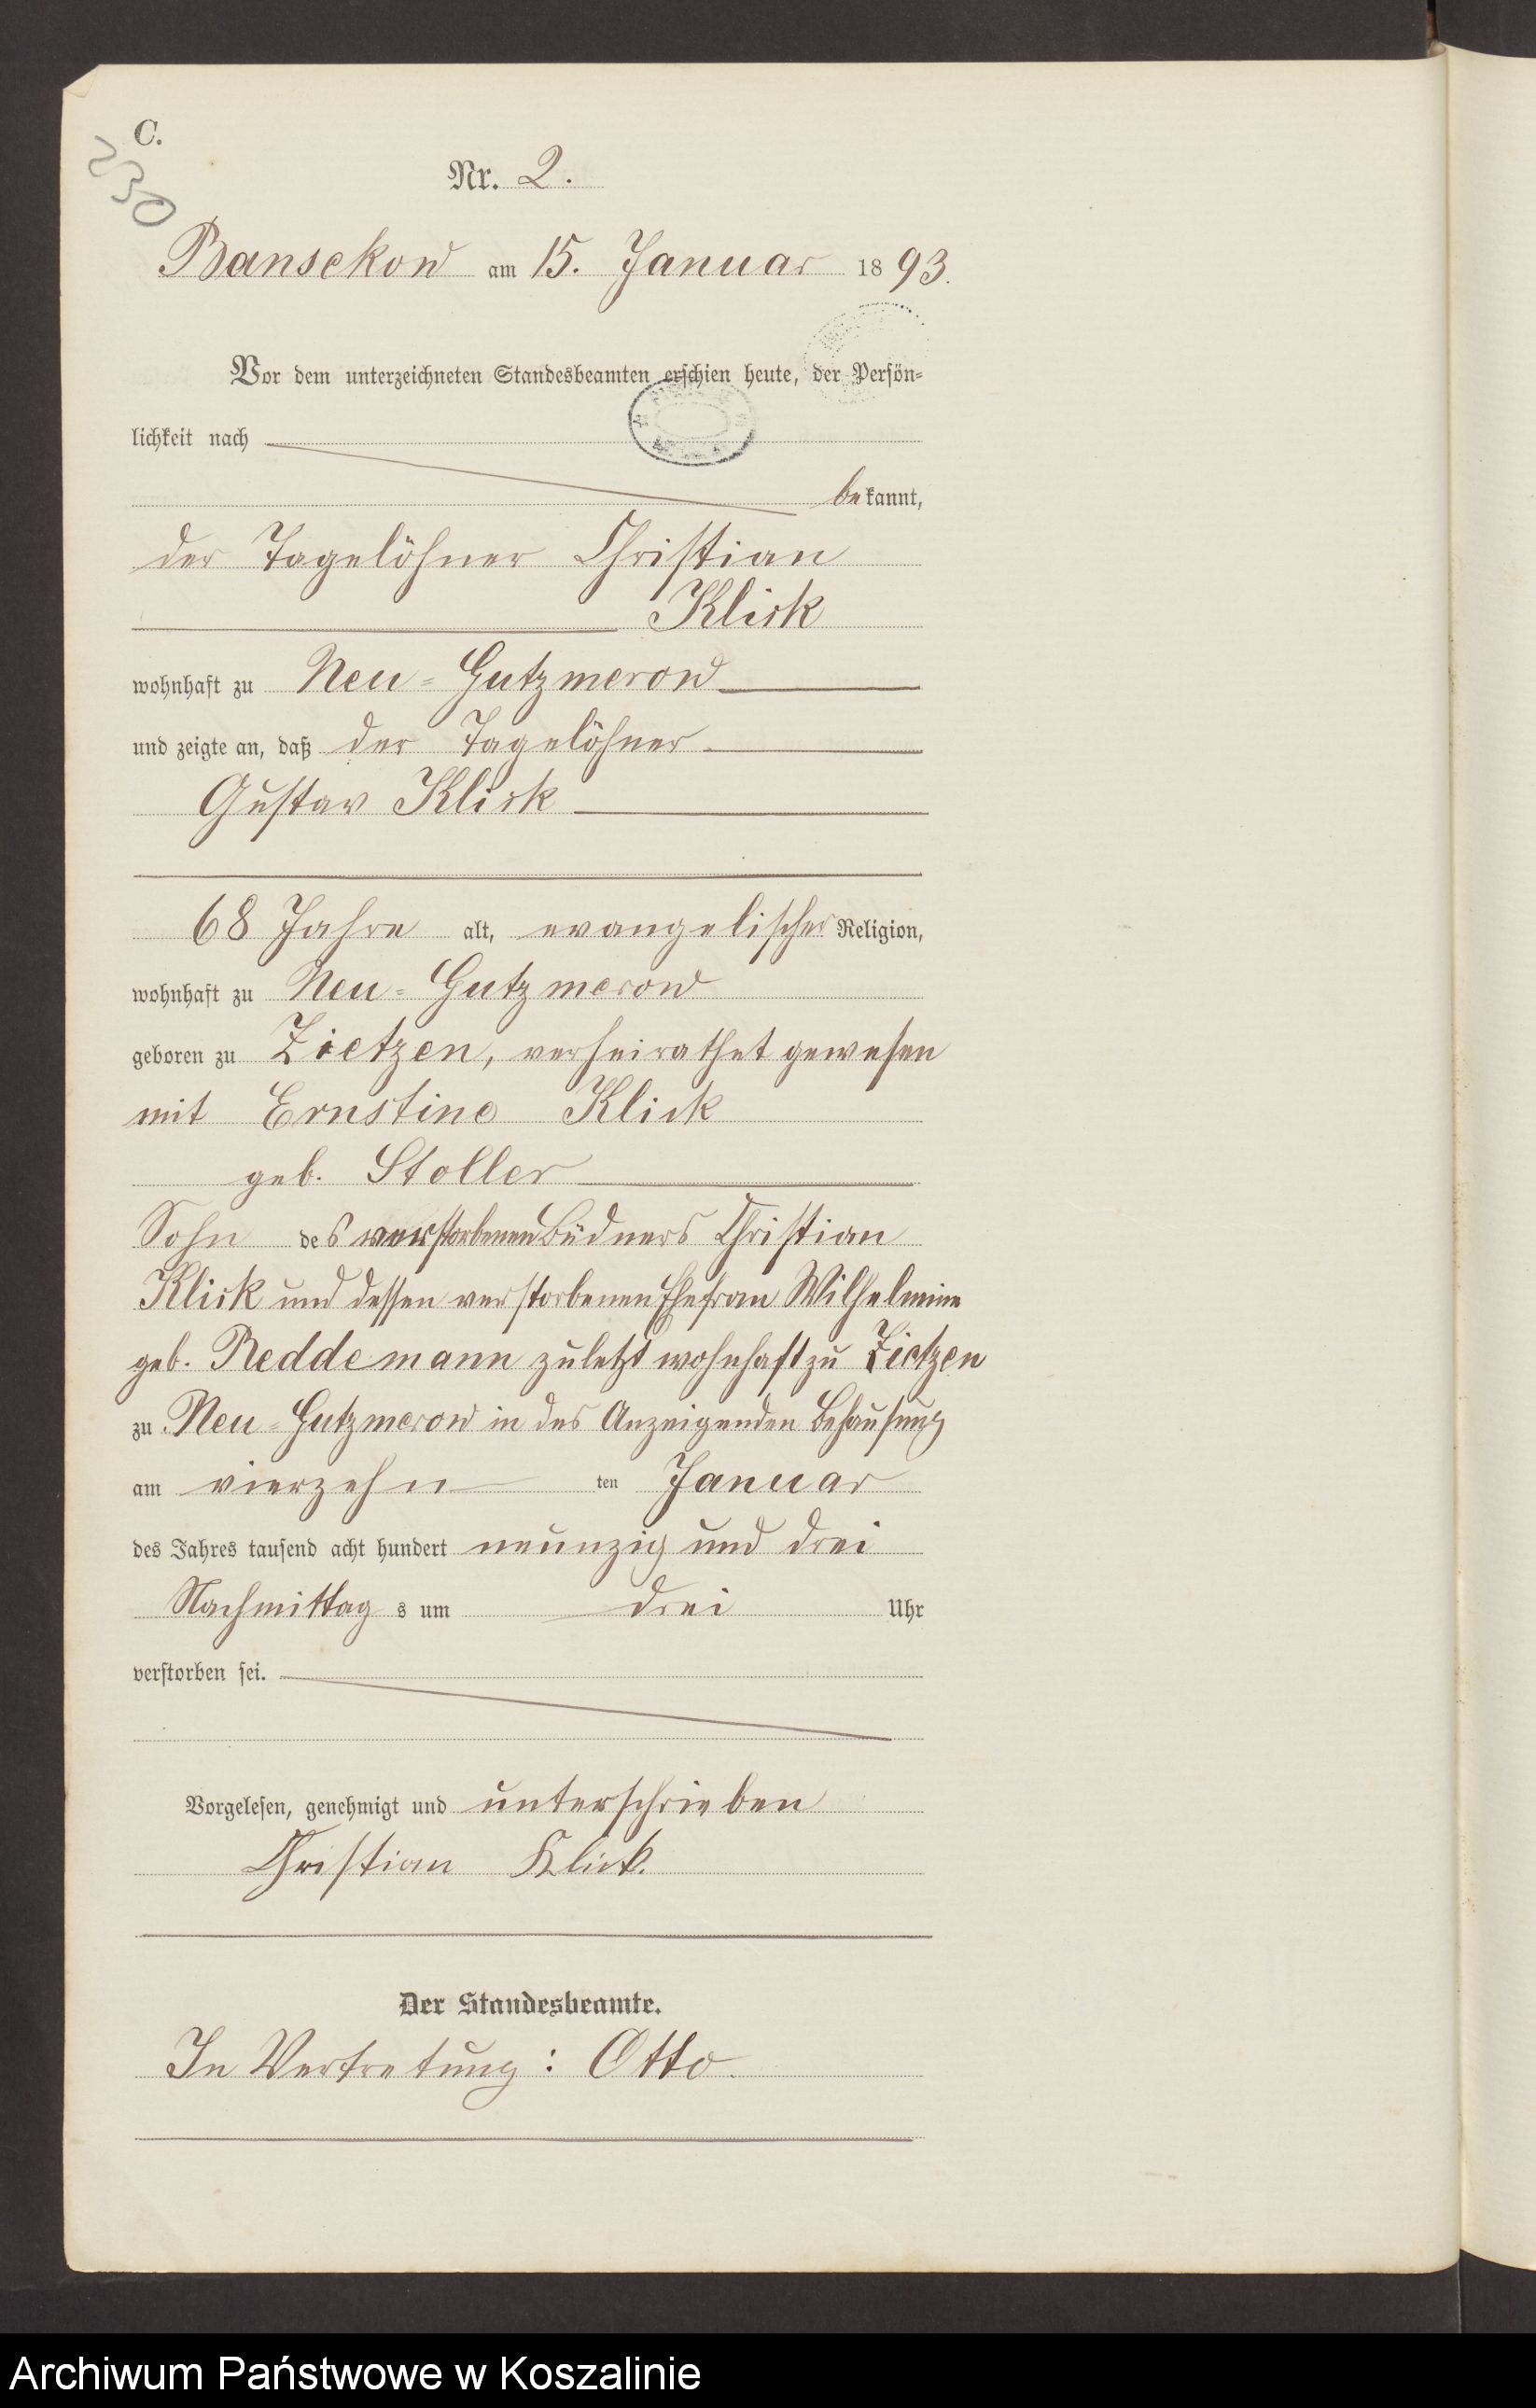 C.
230
Nr. 2.
Bansekow am 15. Januar 1893.
Vor dem unterzeichneten Standesbeamten erschien heute, der Persön-
lichkeit nach
bekannt,
der Tagelöhner Christian
Klick
wohnhaft zu Neu-Gutzmerow
und zeigte an, daß der Tagelöhner
Gustav Klick
68 Jahre alt, evangelischer Religion,
wohnhaft zu Neu-Gutzmerow
geboren zu Zietzen, verheirathet gewesen
mit Ernstine Klick
geb. Stoller
Sohn des verstorbenen Büdners Christian
Klick und dessen verstorbenen Ehefrau Wilhelmine
geb. Reddemann zuletzt wohnhaft zu Zietzen
zu Neu-Gutzmerow in des Anzeigenden Behausung
am vierzehn ten Januar
des Jahres tausend acht hundert neunzig und drei
Nachmittags um drei Uhr
verstorben sei.
Vorgelesen, genehmigt und unterschrieben
Christian Klick.
Der Standesbeamte.
In Vertretung: Otto.
Archiwum Państwowe w Koszalinie